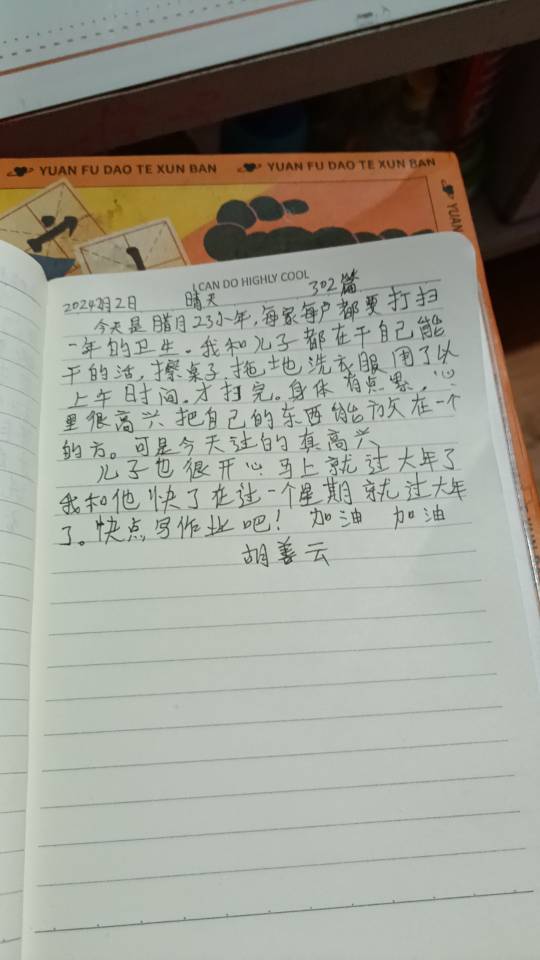 YUAN FU DAO TE XUN BAN YUAN FU DAO TE XUN BAN
YUAN
I CAN DO HIGHLY COOL
2024年2月2日 晴天 302篇
今天是腊月23小年,每家每户都要打扫
一年的卫生。我和儿子都在干自己能
干的活,擦桌子拖地洗衣服用了以
上午时间。才扫完。身体有点累,心
里很高兴把自己的东西能放在一个
的方。可是今天过的真高兴
儿子也很开心马上就过大年了
我和他快了在过一个星期就过大年
了。快点写作业吧!加油 加油
胡善云